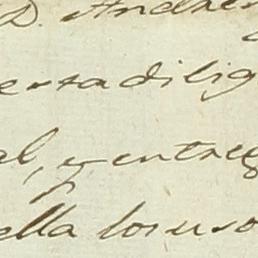 D. Andres
esta dilig
al, y entreg
ella los uso